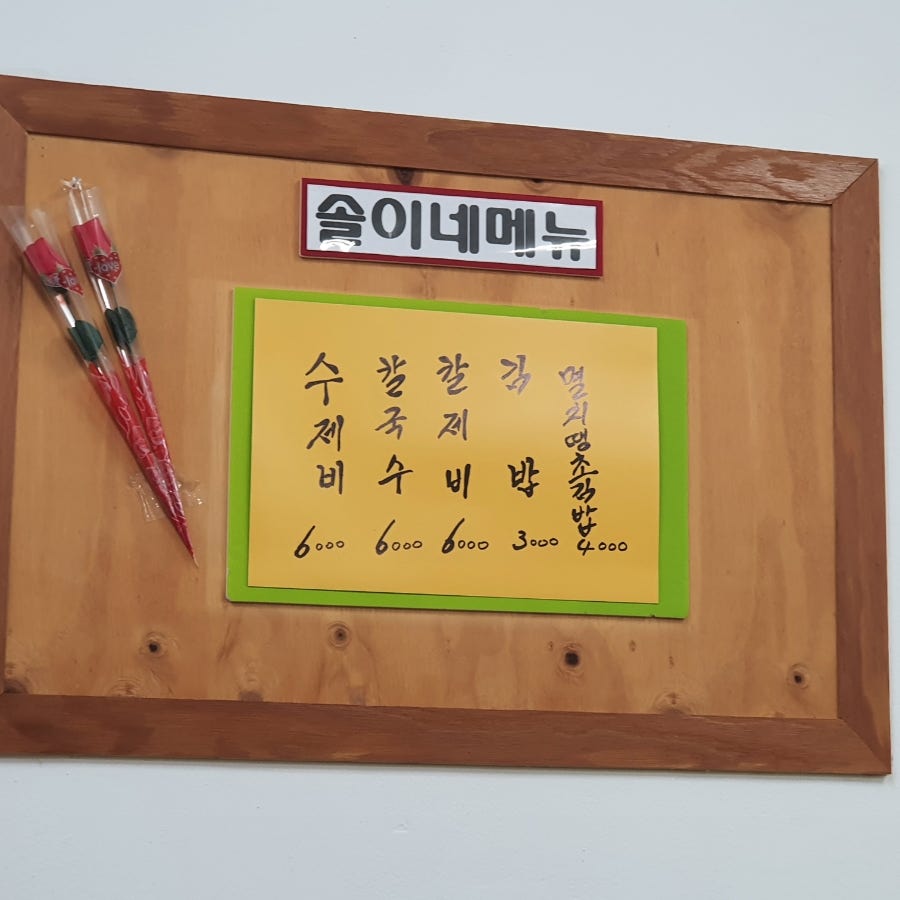 솔이네메뉴
수제비 6000
칼국수 6000
칼제비 6000
김밥 3000
멸치땡초김밥 4000
love